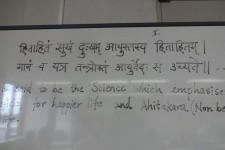 हिताहितं सुखं दुःखम् आयुस्तस्य हिताहितम् ।
मानं च यत्र तन्प्रोक्तं आयुर्वेदः स उच्यते ॥
to be the Science which emphasise
for happier life and Ahitakara (Non be